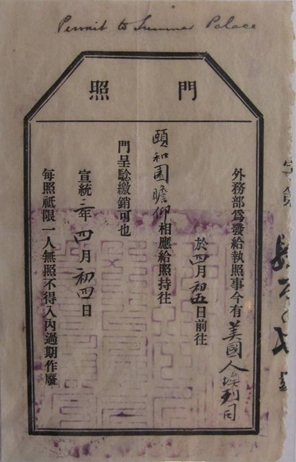 Permit to Summer Palace
門照
外務部爲發給執照事今有美國人
於四月初五日前往
頤和園瞻仰相應給照持往
門呈驗繳銷可也
宣統二年四月初四日
每照祇限一人無照不得入內過期作廢